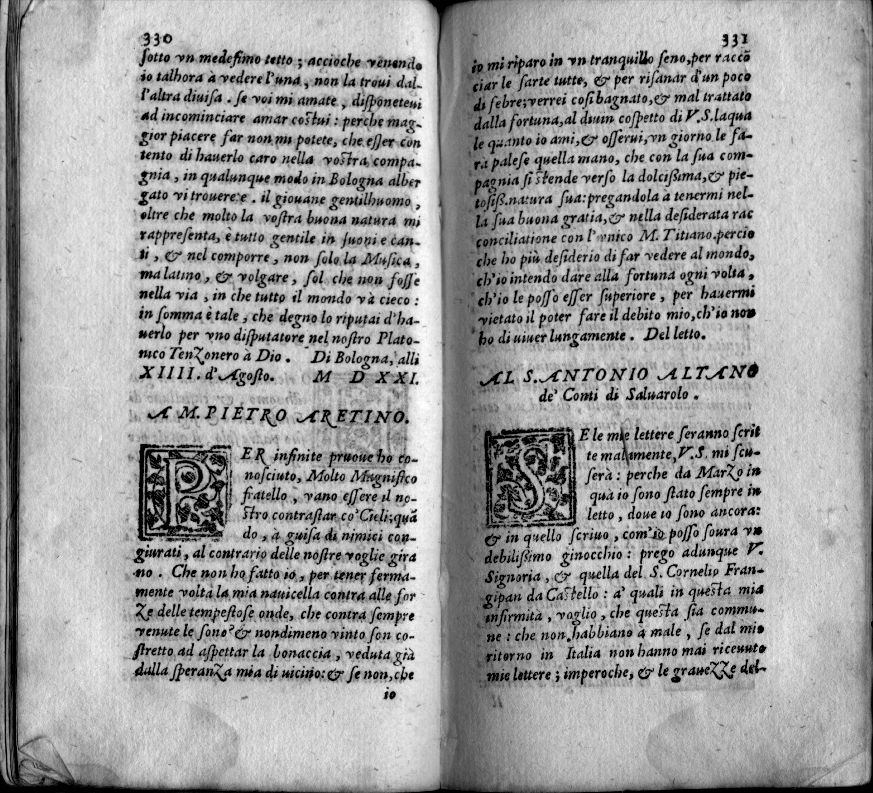 330
sotto vn medesimo tetto ; accioche venendo
io talhora à vedere l'una , non la troui dal-
l'altra diuisa . se voi mi amate , disponeteui
ad incominciare amar costui : perche mag-
gior piacere far non mi potete, che esser con
tento di hauerlo caro nella vostra compa-
gnia , in qualunque modo in Bologna alber
gato vi trouerete . il giouane gentilhuomo ,
oltre che molto la vostra buona natura mi
rappresenta, è tutto gentile in suoni e can-
ti , & nel comporre , non solo la Musica,
ma latino , & volgare , sol che non fosse
nella via , in che tutto il mondo và cieco :
in somma è tale , che degno lo riputai d'ha-
uerlo per vno disputatore nel nostro Plato-
nico Tenzonero à Dio . Di Bologna, alli
XIIII. d'Agosto. M D XXI.
A M. PIETRO ARETINO.
PER infinite pruoue ho co-
nosciuto, Molto Magnifico
fratello , vano essere il no-
stro contrastar co' Cieli; quā
do , à guisa di nimici con-
giurati , al contrario delle nostre voglie gira
no . Che non ho fatto io , per tener ferma-
mente volta la mia nauicella contra alle for
ze delle tempestose onde, che contra sempre
venute le sono? & nondimeno vinto son co-
stretto ad aspettar la bonaccia , veduta già
dalla speranza mia di uicino: & se non, che
io
331
io mi riparo in vn tranquillo seno, per raccō
ciar le sarte tutte, & per risanar d'un poco
di febre; verrei così bagnato, & mal trattato
dalla fortuna, al diuin cospetto di V.S. laqua
le quanto io ami, & osserui, vn giorno le fa-
ra palese quella mano, che con la sua com-
pagnia si stende verso la dolcissima, & pie-
tosiss. natura sua: pregandola a tenermi nel-
la sua buona gratia, & nella desiderata rac
conciliatione con l'vnico M. Titiano. percio
che ho più desiderio di far vedere al mondo,
ch'io intendo dare alla fortuna ogni volta ,
ch'io le posso esser superiore , per hauermi
vietato il poter fare il debito mio, ch'io non
ho di uiuer lungamente . Del letto.
AL S. ANTONIO ALTANO
de' Conti di Saluarolo .
SE le mie lettere seranno scrit
te malamente, V.S. mi scu-
serà : perche da Marzo in
qua io sono stato sempre in
letto , doue io sono ancora:
& in quello scriuo , com'io posso soura vn
debilissimo ginocchio : prego adunque V.
Signoria , & quella del S. Cornelio Fran-
gipan da Castello : a' quali in questa mia
infirmità , voglio , che questa sia commu-
ne : che non habbiano à male , se dal mio
ritorno in Italia non hanno mai riceuuto
mie lettere ; imperoche, & le grauezze del-